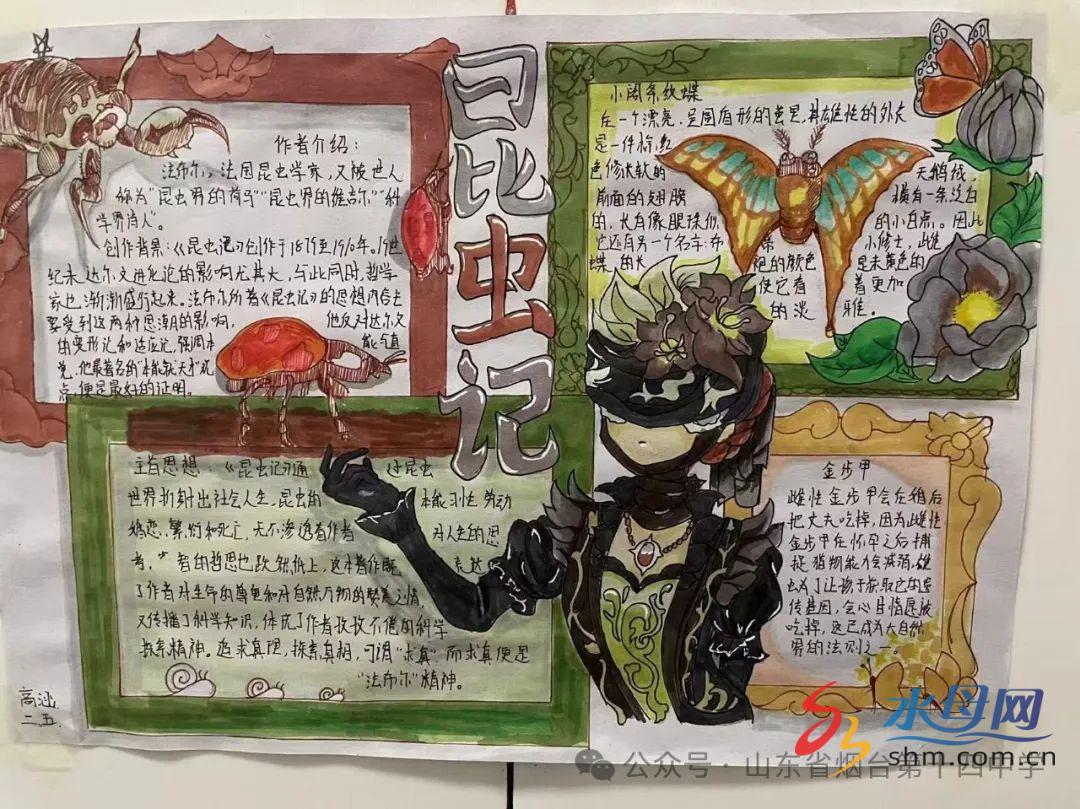 昆虫记
作者介绍：
法布尔，法国昆虫学家，又被世人
称为“昆虫界的荷马”“昆虫界的维吉尔”“科
学界诗人”
创作背景：《昆虫记》创作于1879至1910年。19世
纪末达尔文进化论的影响尤其大，与此同时，哲学
家也渐渐盛行起来。法布尔所著《昆虫记》的思想内容主
要受到这两种思潮的影响，他反对达尔文
的变形论和达论，强调本能与直
觉，他最著名的“本能就天才”观
点，便是最好的证明。
小阔条纹蝶
在一个漂亮，呈圆盾形的茧里，其雄性的外衣
是一件棕红
色修长软的 天鹅绒，
前面的翅膀 横有一条泛白
的，长有像眼珠似 的小白点。因此
它还有另一个名字：布带小修士，雌
蝶的长袍的颜色是末黄色的
使它看着更加
的淡雅。
主旨思想：《昆虫记》通过昆虫
世界折射出社会人生，昆虫的本能习性劳动
婚恋，繁衍和死亡，无不渗透着作者对人类的思
考，智的哲思也跃然纸上，这本著作既表达
了作者对生命的尊重和对自然万物的赞美之情
又传播了科学知识，体现了作者孜孜不倦的科学
探索精神。追求真理，探索真相，可谓“求真”而求真便是
“法布尔”精神。
金步甲
雌性金步甲会在婚后
把丈夫吃掉，因为雌性
金步甲在怀孕之后捕
捉猎物能力会减弱，雄
虫为了让孩子获取它的遗
传基因，会心甘情愿被
吃掉，这已成为大自然
界的法则之一。
二五
水母网
shm.com.cn
公众号·山东省烟台第十四中学